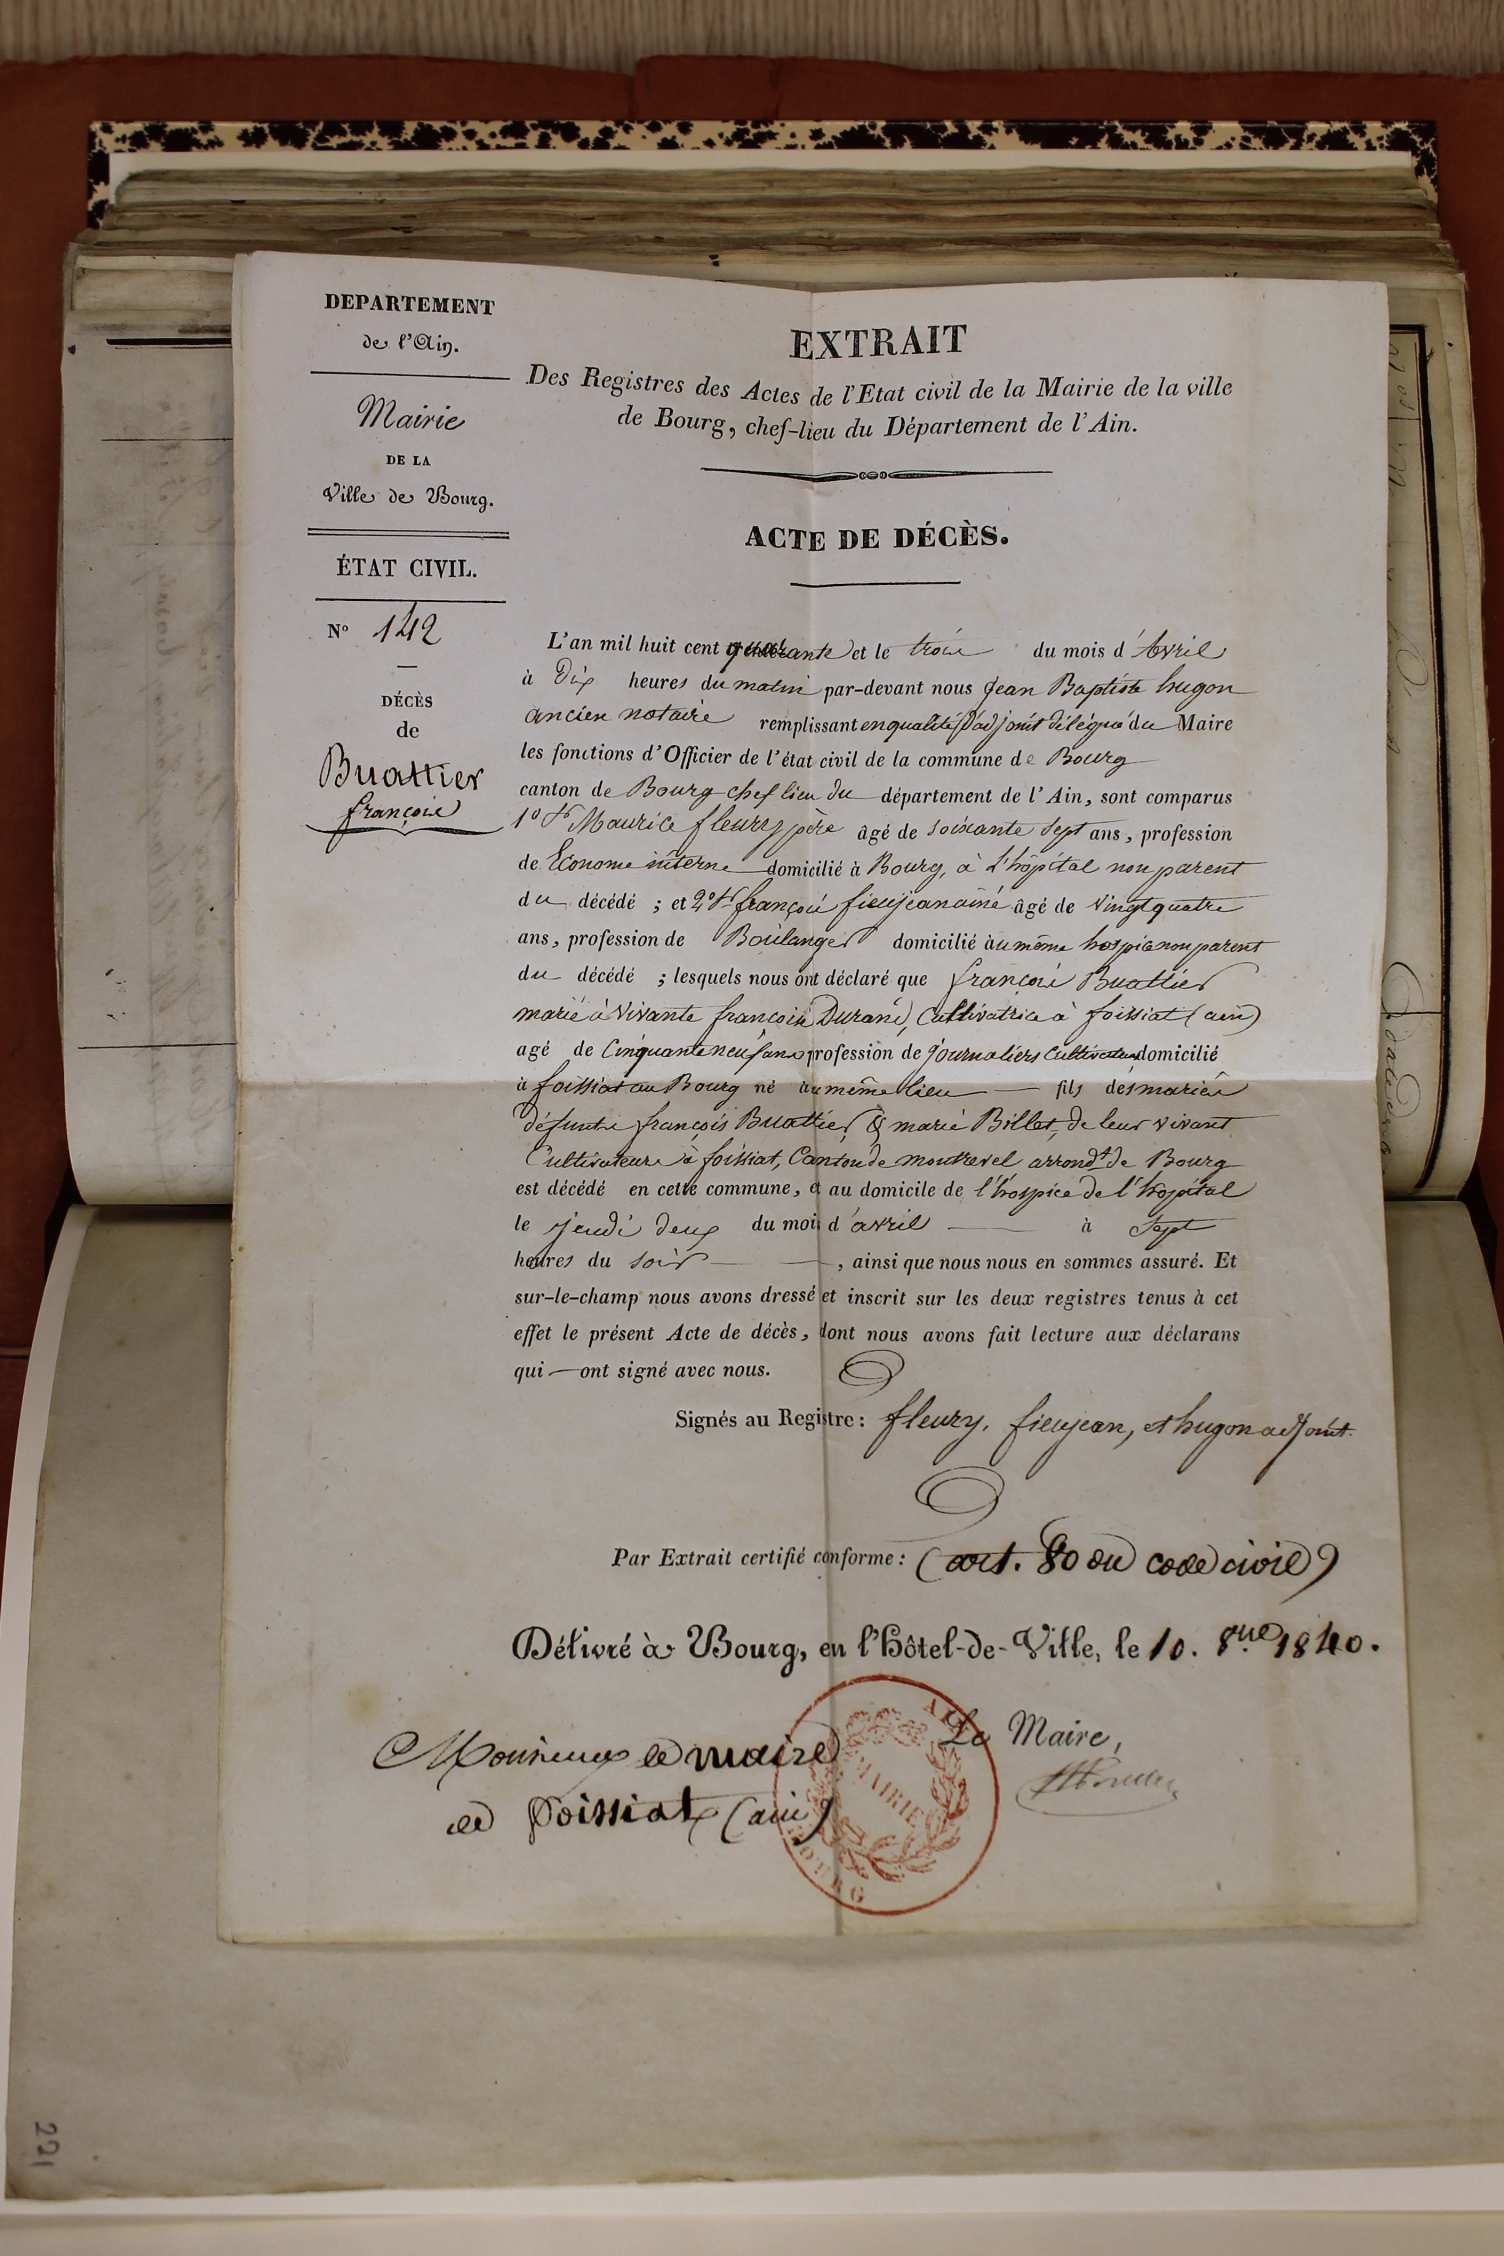 DEPARTEMENT
de l'Ain.
Mairie
DE LA
Ville de Bourg.
ÉTAT CIVIL.
N° 142
DÉCÈS
de
Buattier
françois
EXTRAIT
Des Registres des Actes de l'Etat civil de la Mairie de la ville
de Bourg, chef-lieu du Département de l'Ain.
ACTE DE DÉCÈS.
L'an mil huit cent quarante et le trois du mois d'Avril
à Dix heures du matin par-devant nous Jean Baptiste hugon
ancien notaire remplissant en qualité d'adjoint délégué du Maire
les fonctions d'Officier de l'état civil de la commune de Bourg
canton de Bourg chef lieu du département de l'Ain, sont comparus
1° Sr Maurice fleury père âgé de soixante sept ans, profession
de Econome interne domicilié à Bourg, à l'hôpital non parent
du décédé ; et 2° Sr françois fieujean ainé âgé de vingt quatre
ans, profession de Boulanger domicilié au même hospice non parent
du décédé ; lesquels nous ont déclaré que françois Buattier
marié à vivante françoise Durand, Cultivatrice à foissiat (ain)
agé de Cinquante neuf ans profession de journaliers cultivateur domicilié
à foissiat au Bourg né au même lieu fils des mariés
défunts françois Buattier & marie Billet, de leur vivant
Cultivateurs à foissiat, Canton de montrevel arrondt de Bourg
est décédé en cette commune, et au domicile de l'hospice de l'hopital
le jeudi deux du mois d'avril à Sept
heures du soir , ainsi que nous nous en sommes assuré. Et
sur-le-champ nous avons dressé et inscrit sur les deux registres tenus à cet
effet le présent Acte de décès, dont nous avons fait lecture aux déclarans
qui ont signé avec nous.
Signés au Registre : fleury, fieujean, et hugon adjoint.
Par Extrait certifié conforme : (art. 80 du code civil)
Délivré à Bourg, en l'Hôtel-de-Ville, le 10. 8bre 1840.
Le Maire,
Monsieur le maire
de foissiat (ain)
MAIRIE
BOURG
221